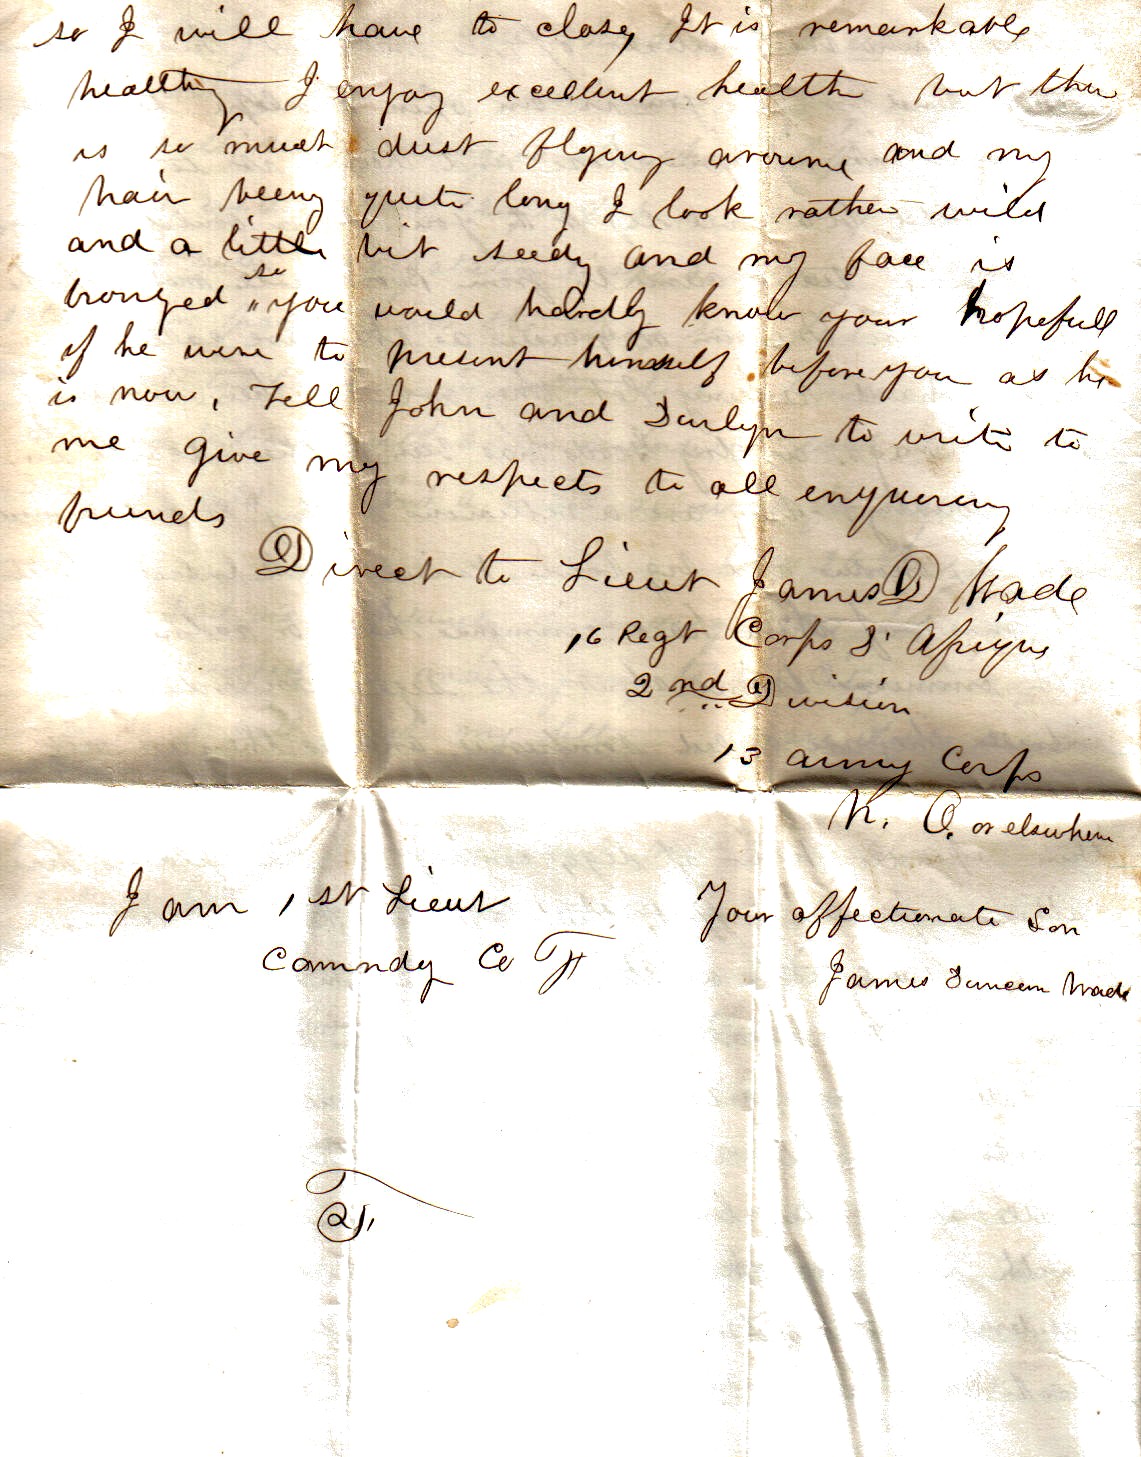 so I will have to close, It is remarkable
healthy I enjoy excellent health but thare
is so much dust flying around and my
hair being quite long I look rather wild
and a little bit seedy and my face is
bronzed so you would hardly know your hopefull
if he were to present himself before you as he
is now. Tell John and Darlyn to write to
me give my respects to all enquiring
friends
Direct to Lieut James D Wade
16 Regt Corps D' Afrique
2nd Division
13 army Corps
N. O. or elsewhere
I am 1st Lieut
Comndg Co F
Your affectionate Son
James Duncan Wade
F